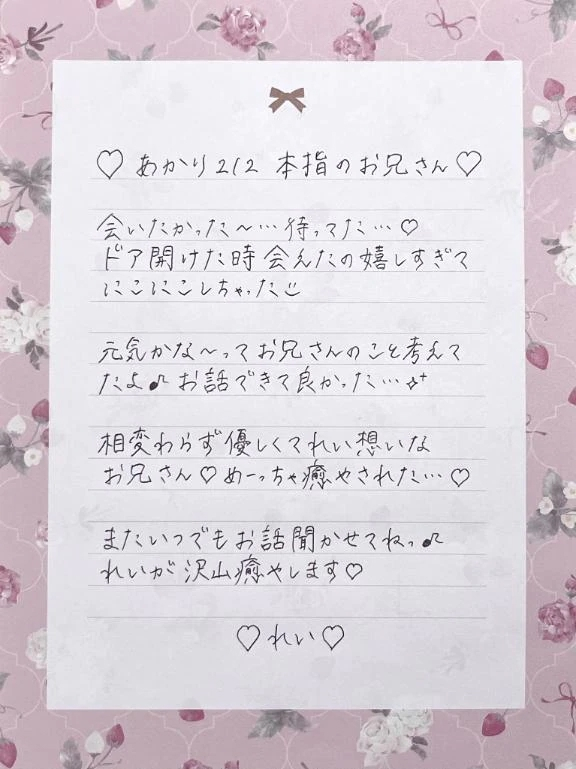 ♡ あかり212 本指のお兄さん ♡
会いたかった〜…待ってた…♡
ドア開けた時会えたの嬉しすぎて
にこにこしちゃった☺
元気かな〜ってお兄さんのこと考えて
たよ♪お話できて良かった…✧⁺
相変わらず優しくてれい想いな
お兄さん♡めーっちゃ癒やされた…♡
またいつでもお話聞かせてねっ♪
れいが沢山癒やします♡
♡れい♡